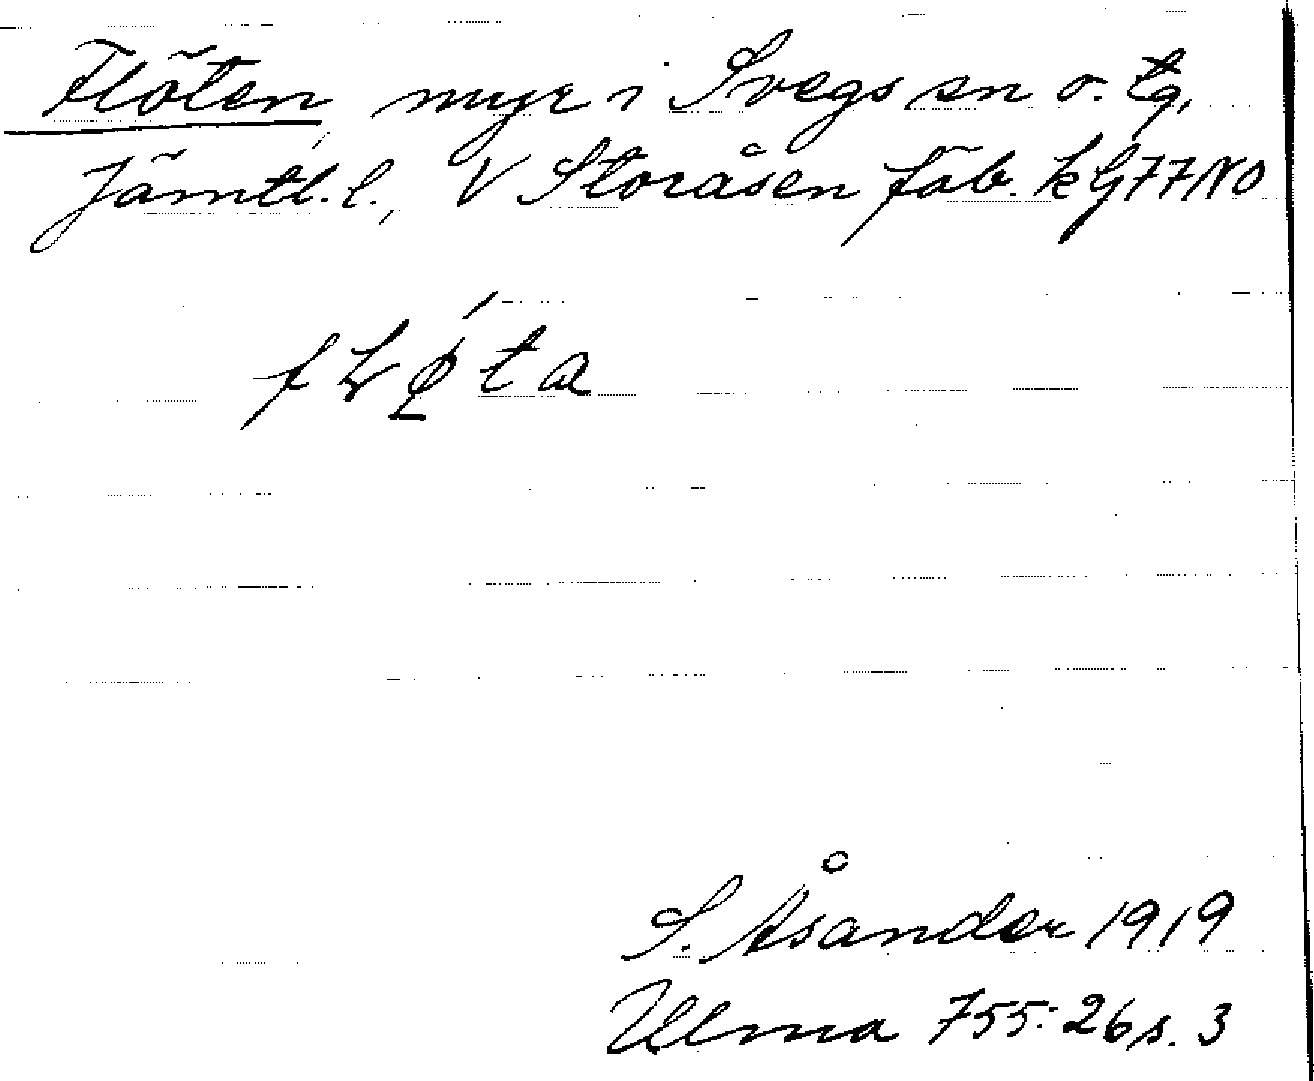 Flöten, myr i Svegs sn o. tg,
Jämtl. l., V Storåsen fäb. kG77NO
S. Åsander 1919
Ulma 755:26 s. 3